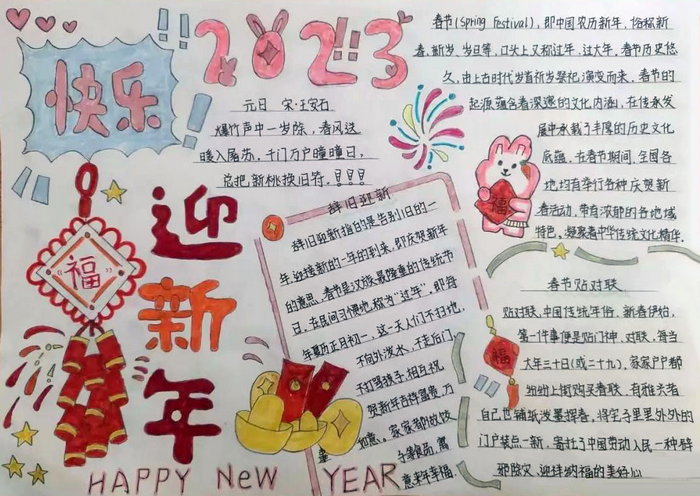 快乐
2023
元日 宋·王安石
爆竹声中一岁除，春风送
暖入屠苏，千门万户曈曈日，
总把新桃换旧符。！！！
春节(Spring Festival)，即中国农历新年，俗称新
春、新岁、岁旦等，口头上又称过年、过大年。春节历史悠
久，由上古时代岁首祈岁祭祀演变而来。春节的
起源蕴含着深邃的文化内涵，在传承发
展中承载了丰厚的历史文化
底蕴。在春节期间，全国各
地均有举行各种庆贺新
春活动，带有浓郁的各地域
特色，凝聚着中华传统文化精华。
福
福
迎
新
年
辞旧迎新
辞旧迎新指的是告别旧的一
年，迎接新的一年的到来，即庆贺新年
的意思。春节是汉族最隆重的传统节
日，在民间习惯地称为“过年”，即每
年夏历正月初一，这一天人们不扫地，
不向外泼水，不走后门
不打骂孩子，相互祝
贺新年吉祥富贵，万
如意。家家都做饭
等食品，寓
意来年幸福。
春节贴对联
贴对联，中国传统年俗，新春伊始，
第一件事便是贴门神、对联，每当
大年三十日(或二十九)，家家户户都
纷纷上街购买春联，有雅兴者
自己也铺纸泼墨挥春，将宅子里里外外的
门户装点一新，寄托了中国劳动人民一种辟
邪除灾、迎祥纳福的美好心
福
HAPPY NeW YEAR